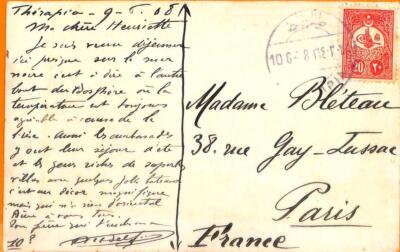 Thérapia - 9-6.08
Ma chère Henriette
Je suis venu déjeuner
ici presque sur la mer
noire c'est à dire à l'autre
bout du Bosphore où la
température est toujours
agréable à cause de la
brise. Aussi les ambassades
y ont leur séjour d'été
et les gens riches de superbes
villas avec quelques jolis bateaux
c'est un décor magnifique
mais qui n'a rien d'oriental
Bien à vous tous.
Ton père qui t'embrasse
10 6 8
20
Madame Bléteau
38, rue Gay-Lussac
Paris
France